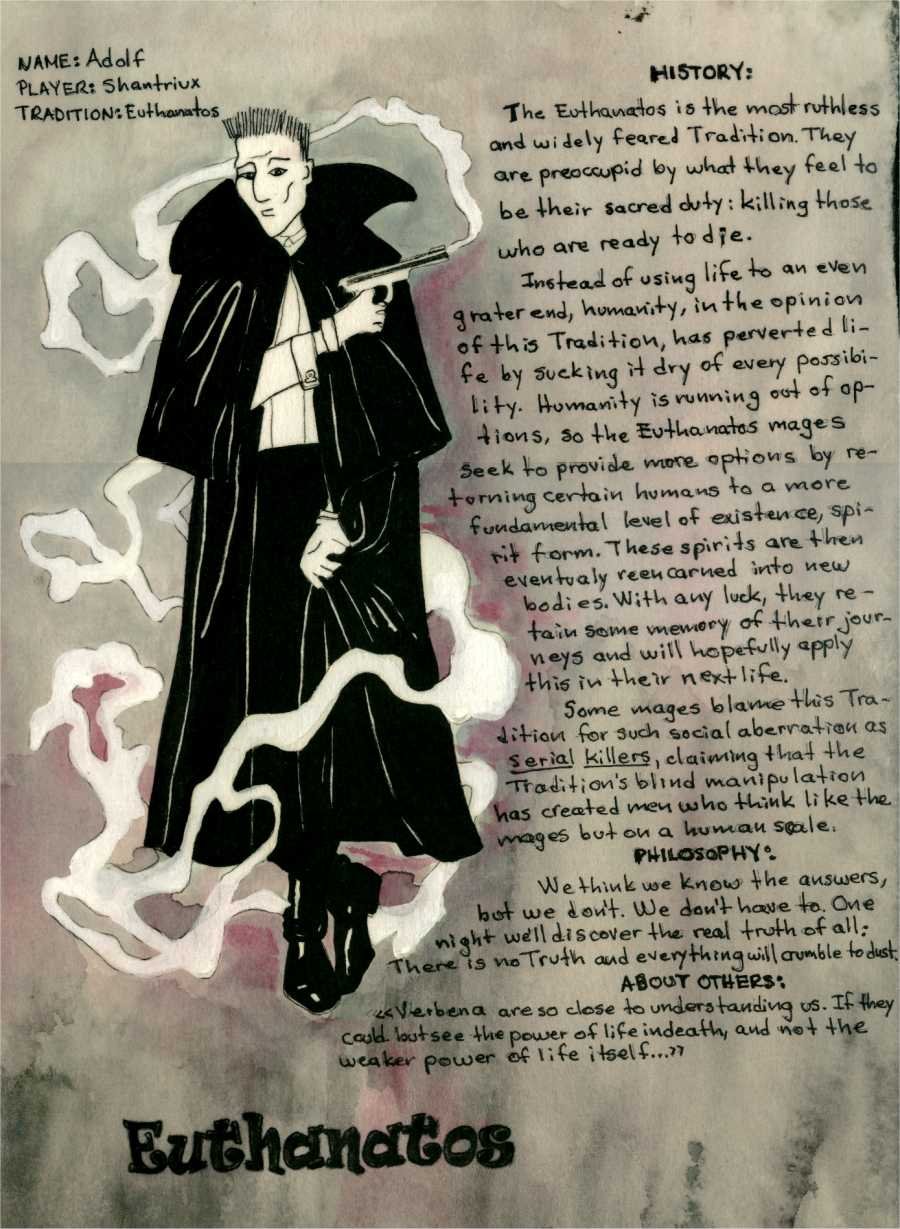 NAME: Adolf
PLAYER: Shantriux
TRADITION: Euthanatos
HISTORY:
The Euthanatos is the most ruthless
and widely feared Tradition. They
are preoccupid by what they feel to
be their sacred duty: killing those
who are ready to die.
Instead of using life to an even
grater end, humanity, in the opinion
of this Tradition, has perverted li-
fe by sucking it dry of every possibi-
lity. Humanity is running out of op-
tions, so the Euthanatos mages
seek to provide more options by re-
torning certain humans to a more
fundamental level of existence, spi-
rit form. These spirits are then
eventualy reencarned into new
bodies. With any luck, they re-
tain some memory of their jour-
neys and will hopefully apply
this in their next life.
Some mages blame this Tra-
dition for such social aberration as
serial killers, claiming that the
Tradition's blind manipulation
has created men who think like the
mages but on a human scale.
PHILOSOPHY:
We think we know the answers,
but we don't. We don't have to. One
night we'll discover the real truth of all:
There is no Truth and everything will crumble to dust.
ABOUT OTHERS:
«Verbena are so close to understanding us. If they
could but see the power of life in death, and not the
weaker power of life itself...»
Euthanatos